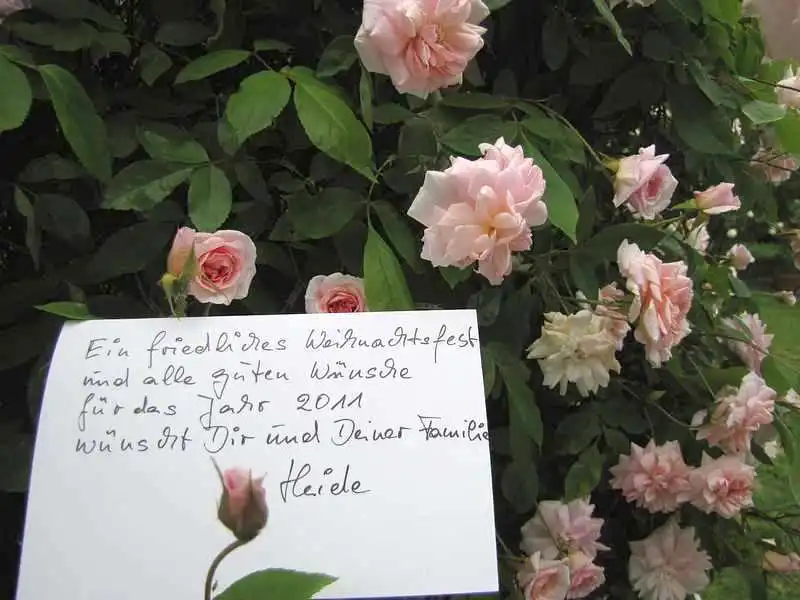 Ein friedliches Weihnachtsfest
und alle guten Wünsche
für das Jahr 2011
wünscht Dir und Deiner Familie
Heide